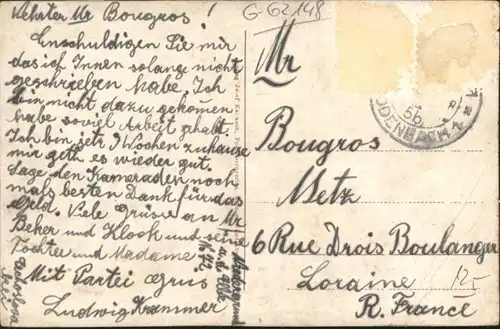 Wehrter Mr Bougros!
G-G2148
Enschuldigen Sie mir
das ich Innen solange nicht
geschrieben habe. Ich
bin nicht dazu gekomen
habe soviel Arbeit gehabt
Ich bin jetz 7 Wochen zuhause
mir geth es wieder gut.
Sage den Kameraden noch
mals besten Dank für das
Geld. Viele Grüsse an Mr
Beher und Klock und seine
Tochter und Madame
Mit Partei Grus
Ludwig Krammer
Mr
Bougros
Metz
6 Rue Drois Boulanger
Loraine
R. France
12,-